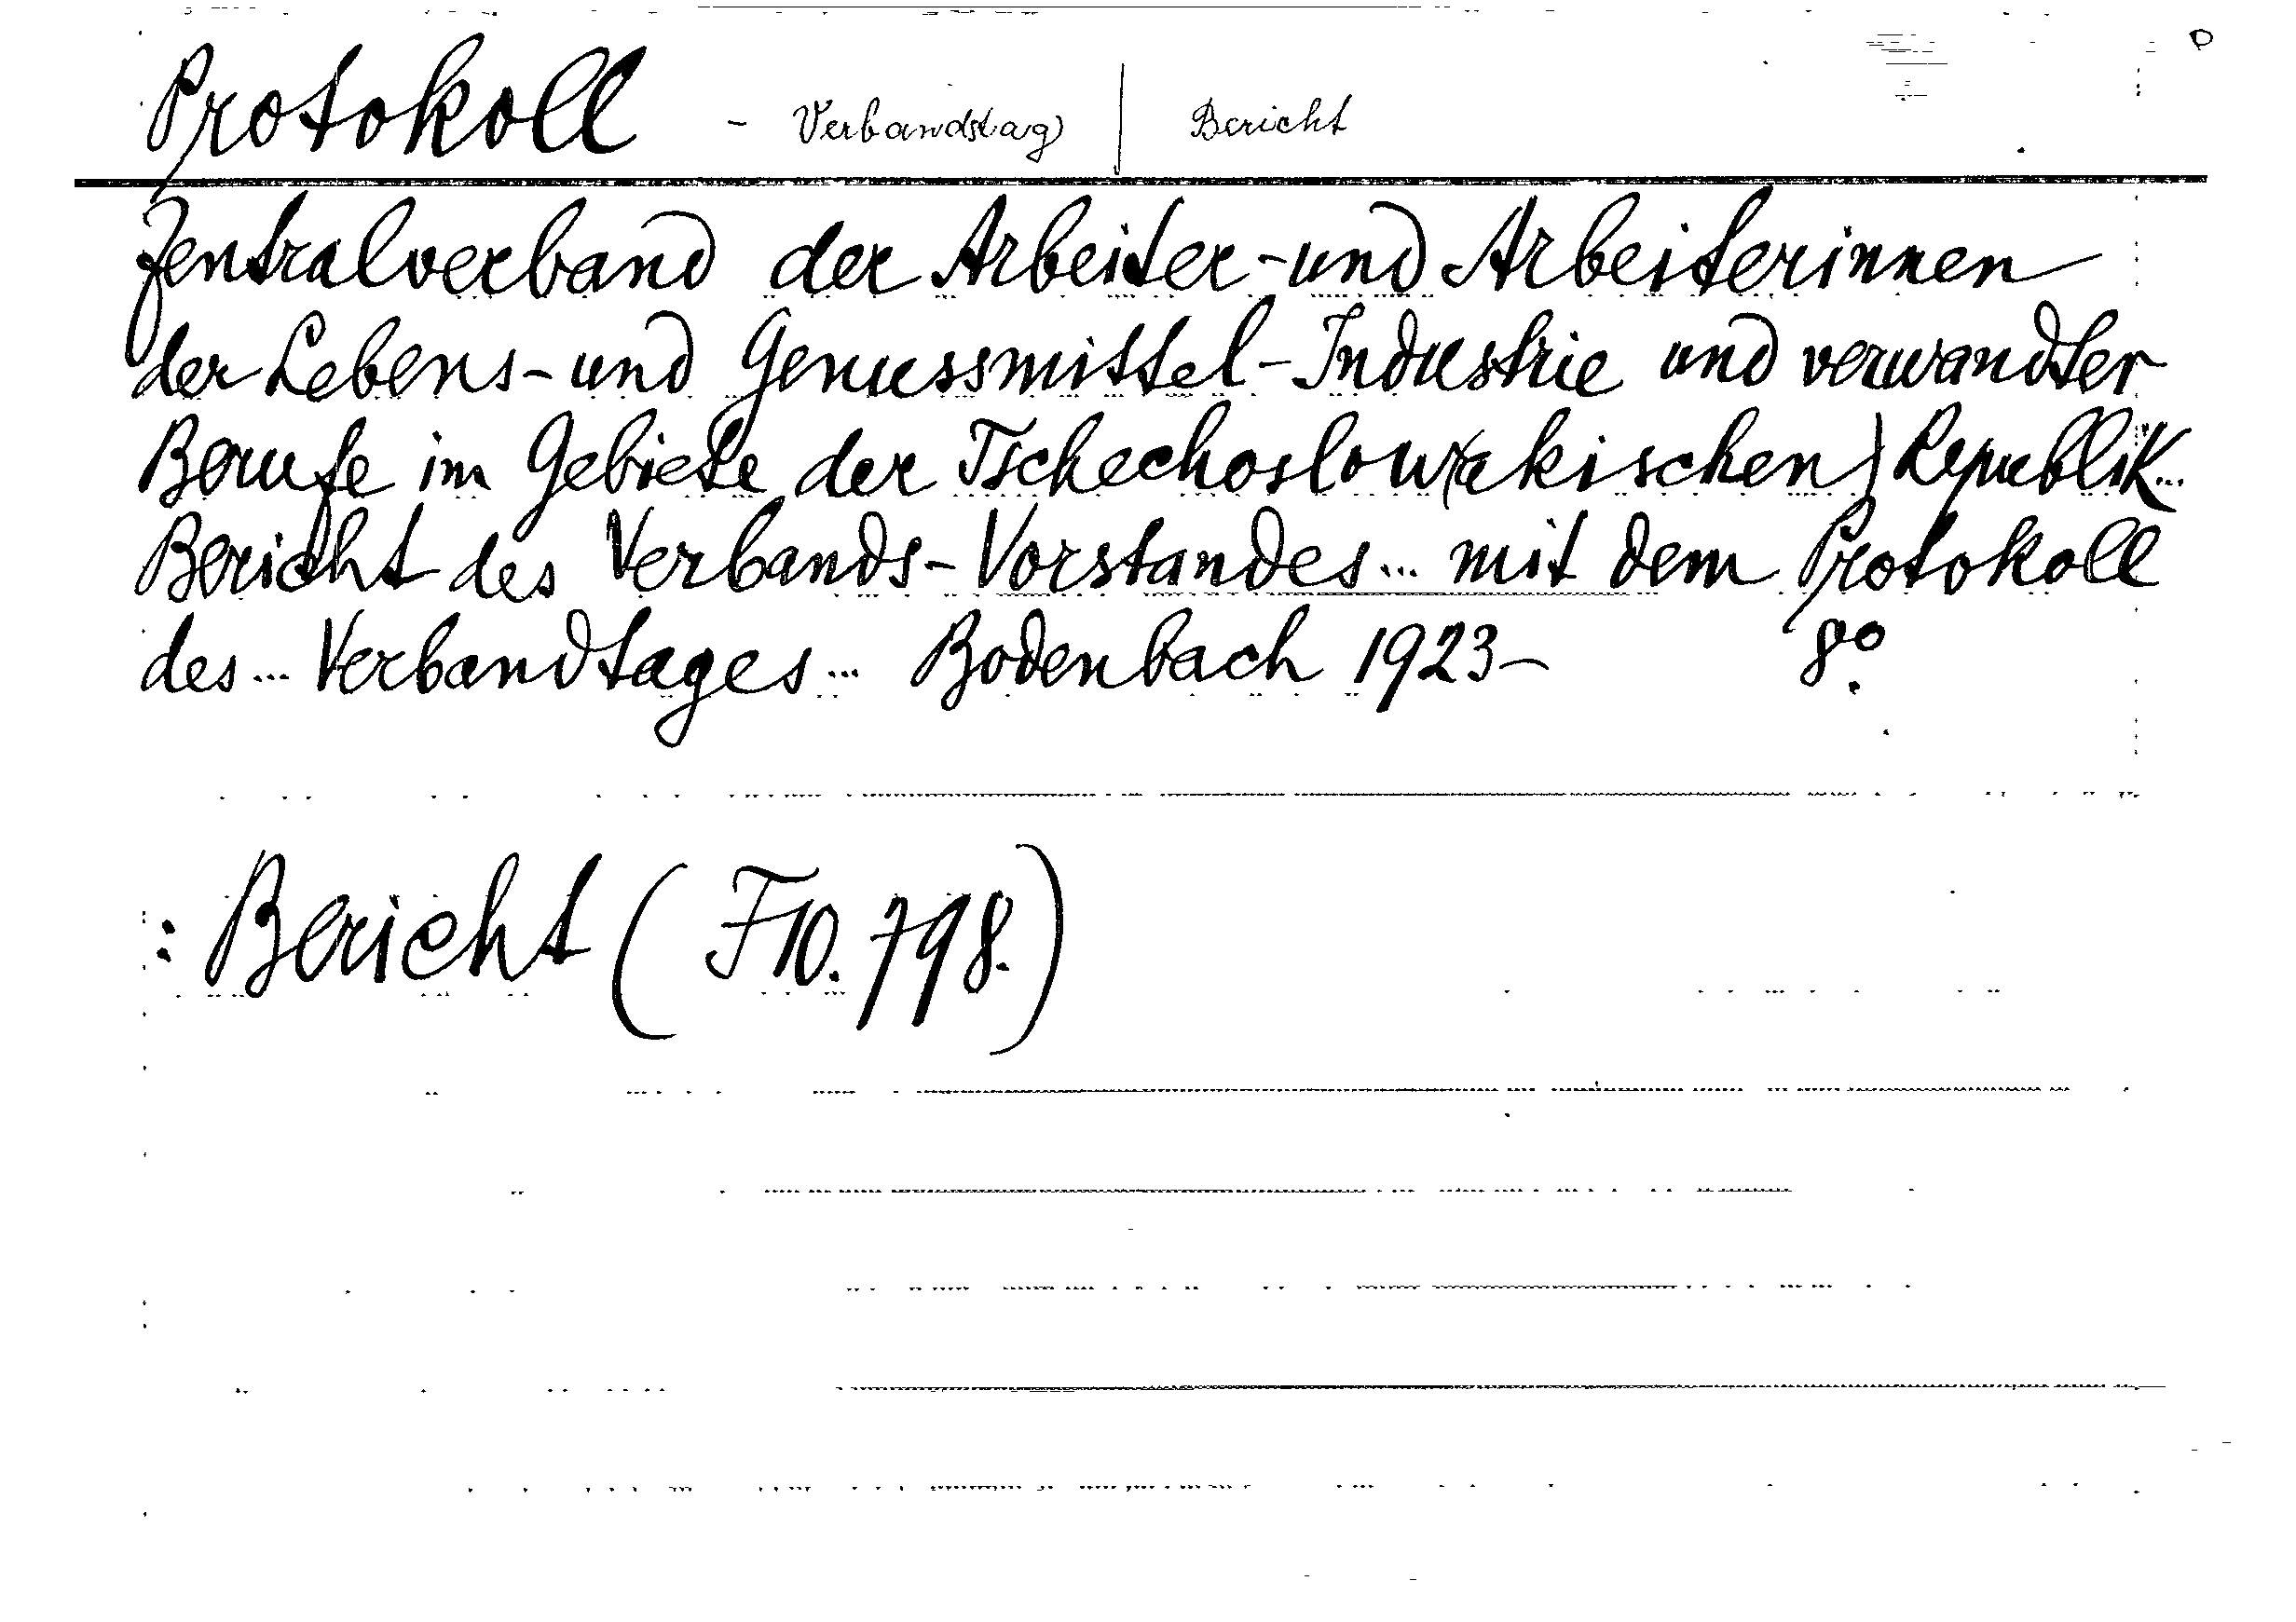 Protokoll - Verbandstag | Bericht
Zentralverband der Arbeiter-und Arbeiterinnen
der Lebens-und Genussmittel-Industrie und verwandter
Berufe im Gebiete der Tschechoslow(akischen) Republik...
Bericht des Verbands-Vorstandes... mit dem Protokoll
des... Verbandtages... Bodenbach 1923- 8°.
: Bericht (F10.798.)